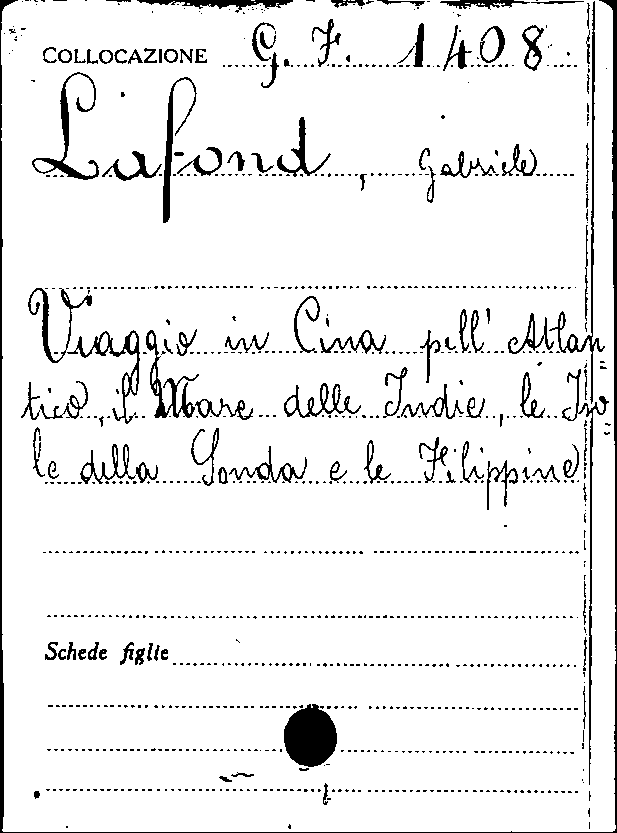 COLLOCAZIONE G. F. 1408
Lafond, Gabriele
Viaggio in Cina pell' Atlan=
tico, il Mare delle Indie, le Iso=
le della Sonda e le Filippine
Schede figlie